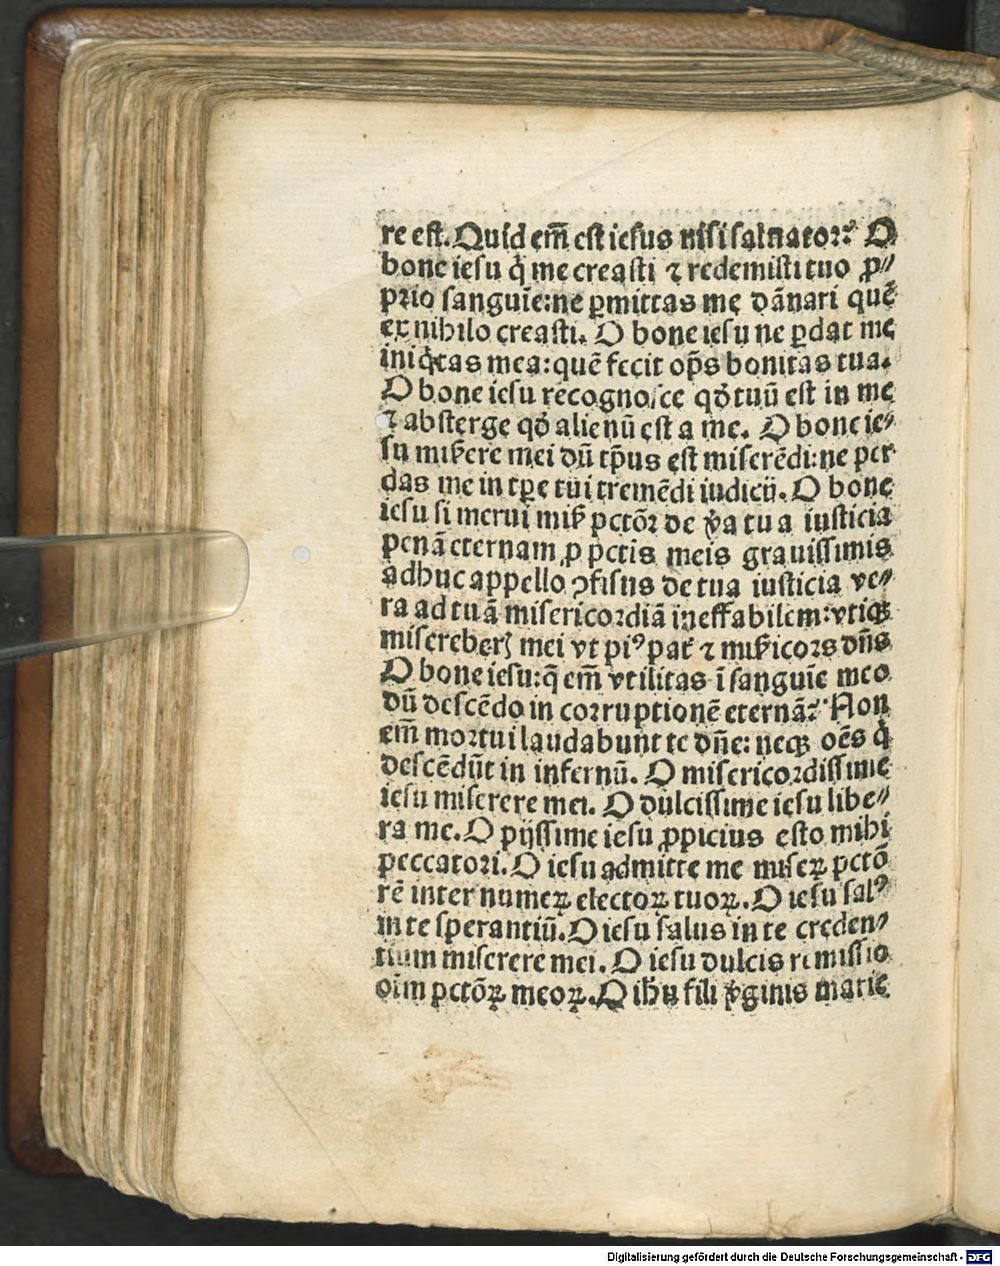 re est. Quid em̃ est iesus nisi saluator? O
bone iesu q̇ me creasti ⁊ redemisti tuo ꝓ⸗
prio sanguīe: ne ꝑmittas me dānari quē
ex nihilo creasti. O bone iesu ne ꝑdat me
iniq̇tas mea: quē fecit op̄s bonitas tua.
O bone iesu recognosce qð tuū est in me
⁊ absterge qð alienū est a me. O bone ie⸗
su mis̃ere mei dū tp̄us est miserēdi: ne per
das me in tꝑe tui tremēdi iudicij. O bone
iesu si merui mis̃ pctōꝛ de v̾a tua iusticia
penā eternam ꝓ pctis meis grauissimis
adhuc appello ꝯfisus de tua iusticia ve⸗
ra ad tuā misericordiā ineffabilem: vtiqꝫ
misereberꝭ mei vt piꝰ pat̾ ⁊ mis̃icors dn̄s
O bone iesu: q̄ em̃ vtilitas ī sanguīe meo
dū descēdo in corruptionē eternā? Non
em̃ mortui laudabunt te dn̄e: neqꝫ oēs q̇
descēdūt in infernū. O misericordissime
iesu miserere mei. O dulcissime iesu libe⸗
ra me. O pijssime iesu ꝓpicius esto mihi
peccatori. O iesu admitte me miseꝝ pctō
rē inter numeꝝ electoꝝ tuoꝝ. O iesu salꝰ
in te sperantiū. O iesu salus in te creden⸗
tium miserere mei. O iesu dulcis remissio
oīm pctōꝝ meoꝝ. O ih̄u fili v̾ginis marie
Digitalisierung gefördert durch die Deutsche Forschungsgemeinschaft - DFG